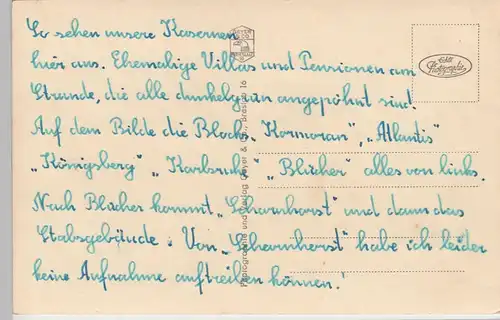 So sehen unsere Kasernen
hier aus. Ehemalige Villas und Pensionen am
Strande, die alle dunkelgrün angepöhnt sind.
Auf dem Bilde die Blocks „Kormoran”, „Atlantis”
„Königsberg” „Karlsruhe” „Blücher” alles von links.
Nach Blücher kommt „Scharnhorst” und dann das
Stabsgebäude. Von „Scharnhorst” habe ich leider
keine Aufnahme auftreiben können!
Echte
Photographie
Photographie und Verlag Geyer & Co., Breslau 16